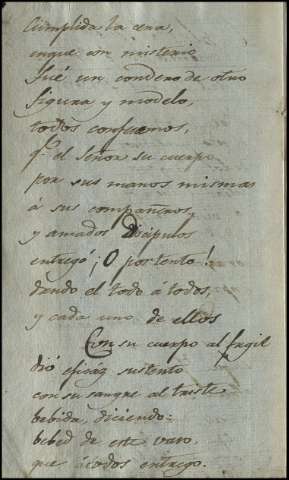 Cumplida la cena,
enque con misterio
fué un cordero de otro
figura y modelo,
todos confiesemos,
q.e el Señor su cuerpo
por sus manos mismas
á sus compañros,
y amados Dicipulos
entregó ¡O portento!
dando el todo á todos,
y cada uno de ellos
Con su cuerpo al fragil
dió eficáz sustento
con su sangre al triste
bebida, diciendo:
bebed de este vaso,
que átodos entrego.